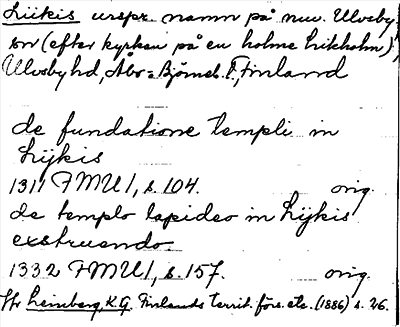 Liikis urspr. namn på nuv. Ulvsby
sn (efter kyrkan på en holme Liikholm),
Ulvsby hd, Åbo-Björneb. l., Finland
de fundatione templi in
Lijkis
1311 FMU 1, s. 104. orig.
de templo lapideo in Lijkis
exstruendo
1332 FMU 1, s. 157. orig.
Jfr Leinberg, K.G. Finlands territ. förs. etc. (1886) s. 26.